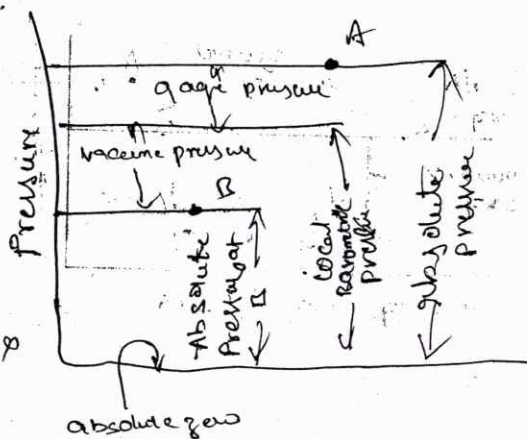 A
gage pressure
vaccume pressure
B
Pressure
Absolute
Pressure at
B
local
Barometric
Pressure
Absolute
Pressure
absolute zero